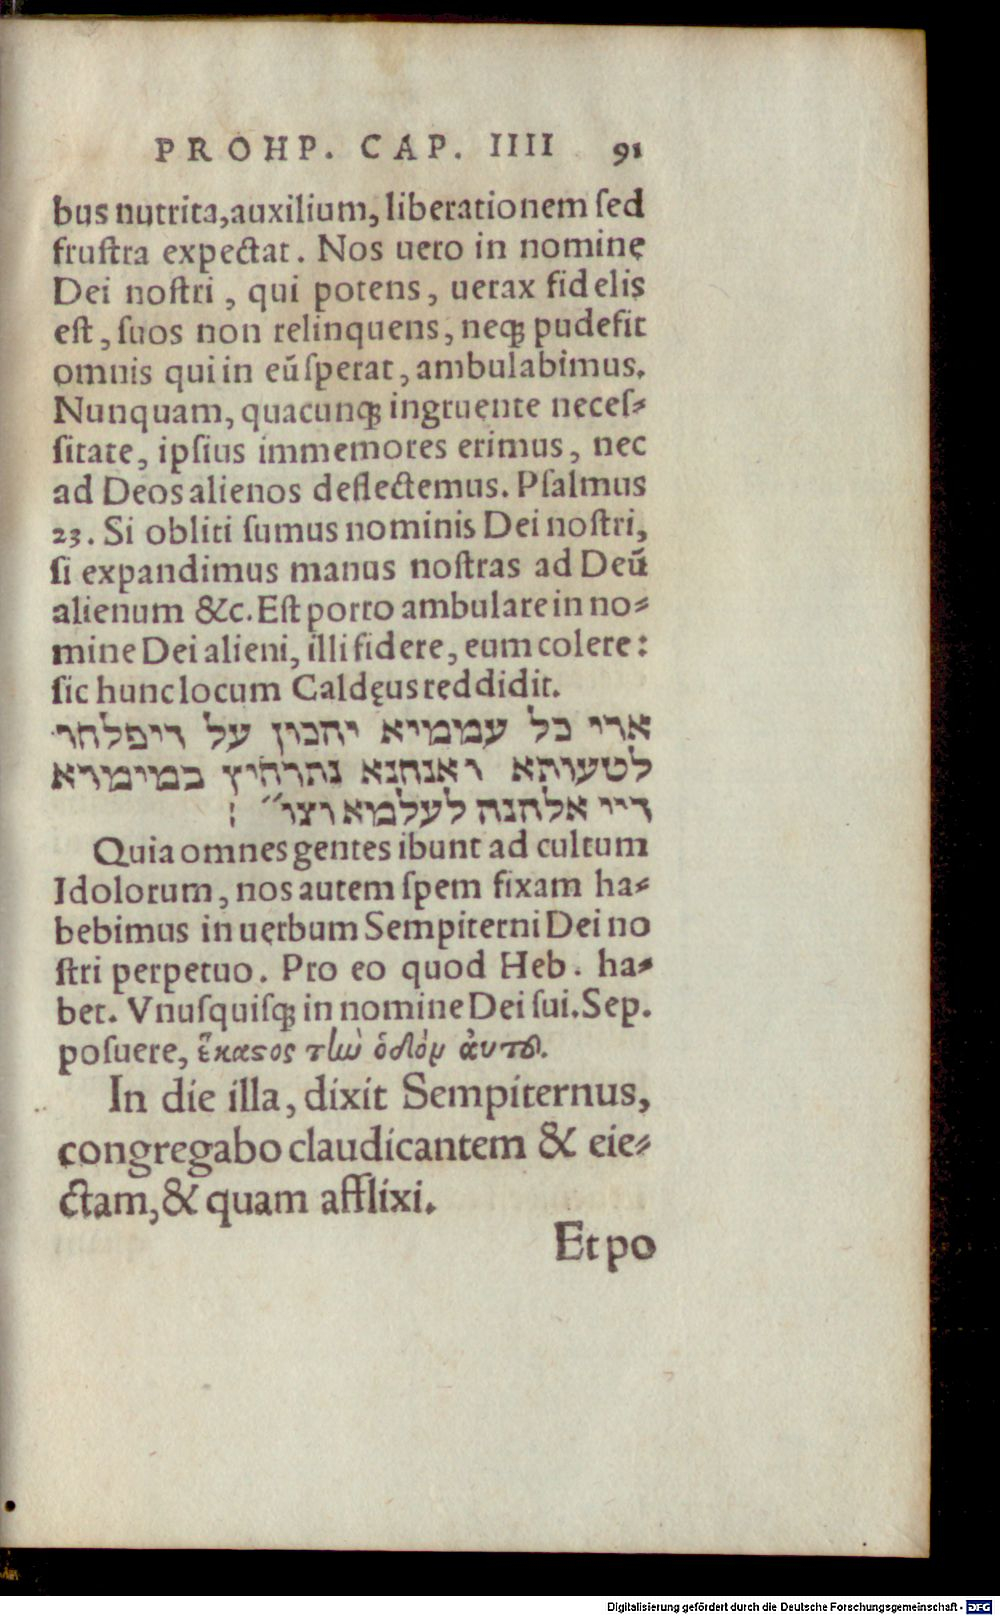 PROHP. CAP. IIII 91
bus nutrita, auxilium, liberationem sed
frustra expectat. Nos uero in nomine
Dei nostri, qui potens, uerax fidelis
est, suos non relinquens, neqꝫ pudefit
omnis qui in eũ sperat, ambulabimus.
Nunquam, quacunqꝫ ingruente neces⸗
sitate, ipsius immemores erimus, nec
ad Deos alienos deflectemus. Psalmus
23. Si obliti sumus nominis Dei nostri,
si expandimus manus nostras ad Deũ
alienum &c. Est porro ambulare in no⸗
mine Dei alieni, illi fidere, eum colere:
sic hunc locum Caldęus reddidit.
ארי כל עממיא יהכון על דיפלחו
לטעותא ואנחנא נתרחיץ במימרא
דיי אלהנה לעלמא וצו״ :
Quia omnes gentes ibunt ad cultum
Idolorum, nos autem spem fixam ha⸗
bebimus in uerbum Sempiterni Dei no
stri perpetuo. Pro eo quod Heb. ha⸗
bet. Vnusquisqꝫ in nomine Dei sui. Sep.
posuere, ἕκαστος τὼ ὁδὸμ ἀυτοῦ.
In die illa, dixit Sempiternus,
congregabo claudicantem & eie⸗
ctam, & quam afflixi.
Et po
Digitalisierung gefördert durch die Deutsche Forschungsgemeinschaft - DFG